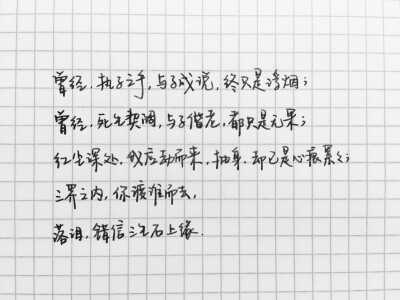 曾经，执子之手，与子成说，终只是浮烟；
曾经，死生契阔，与子偕老，都只是无果；
红尘深处，我应劫而来，抽身，却已是心痕累累；
三界之内，你渡谁而去，
落泪，错信三生石上缘.